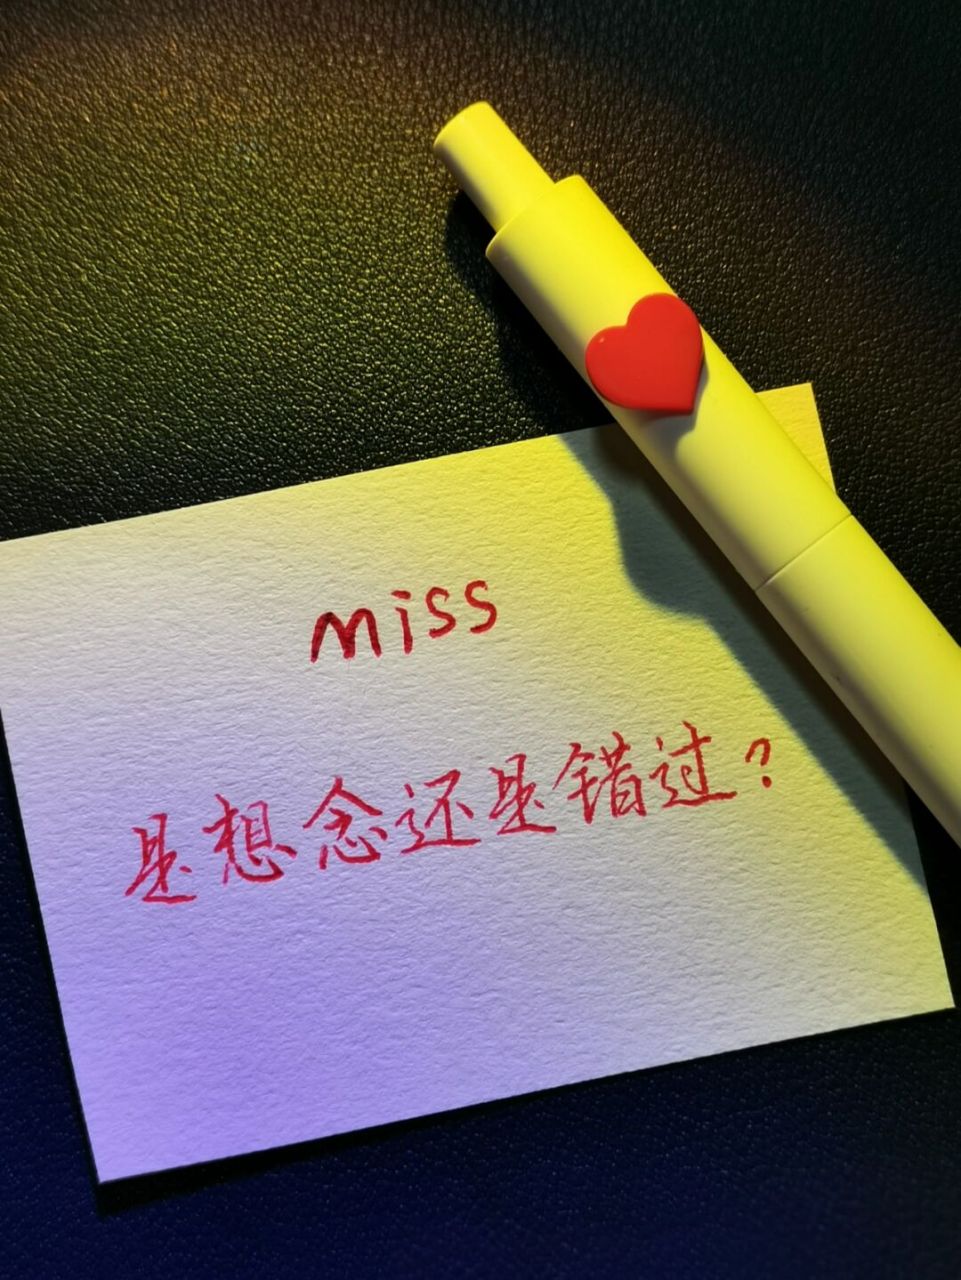 miss
是想念还是错过？